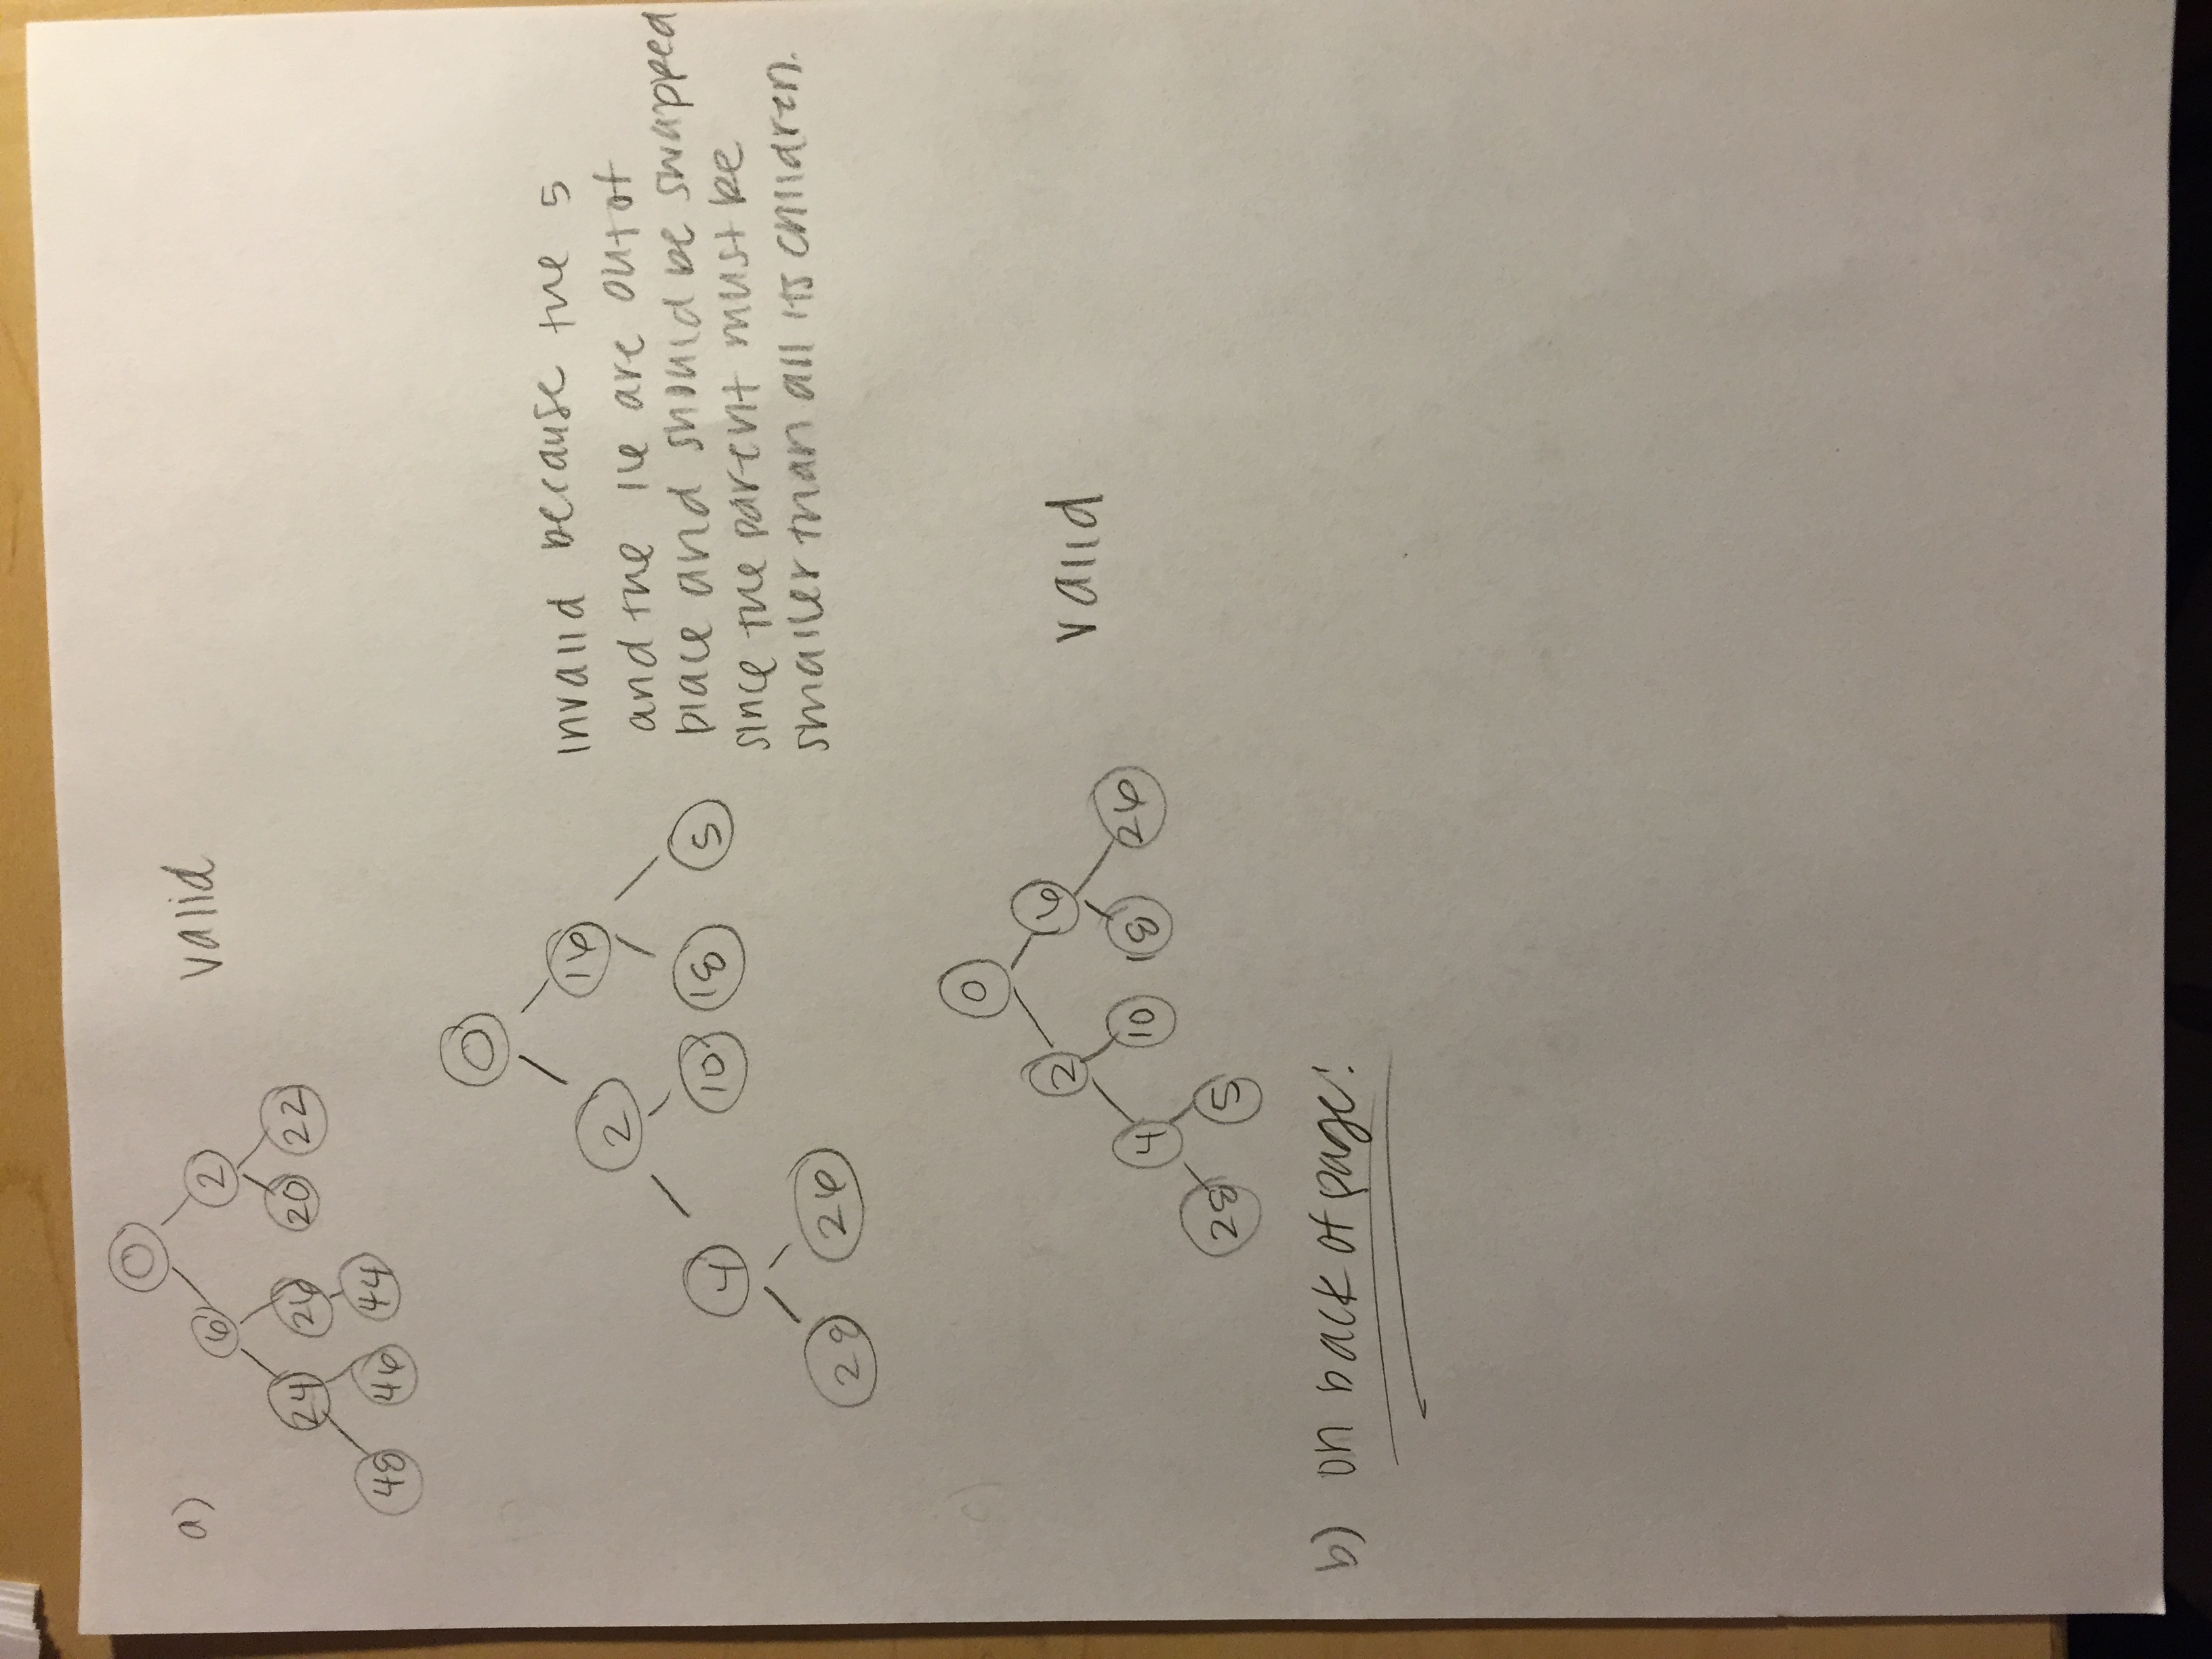 0
a)
6 2
valid
24 26 20 22
48 46 44
0
2 16
4 10 18 5
28 26
invalid because the 5
and the 16 are out of
place and should be swapped
since the parent must be
smaller than all its children.
c)
0
2 6
valid
4 10 18 26
28 5
b) on back of page!